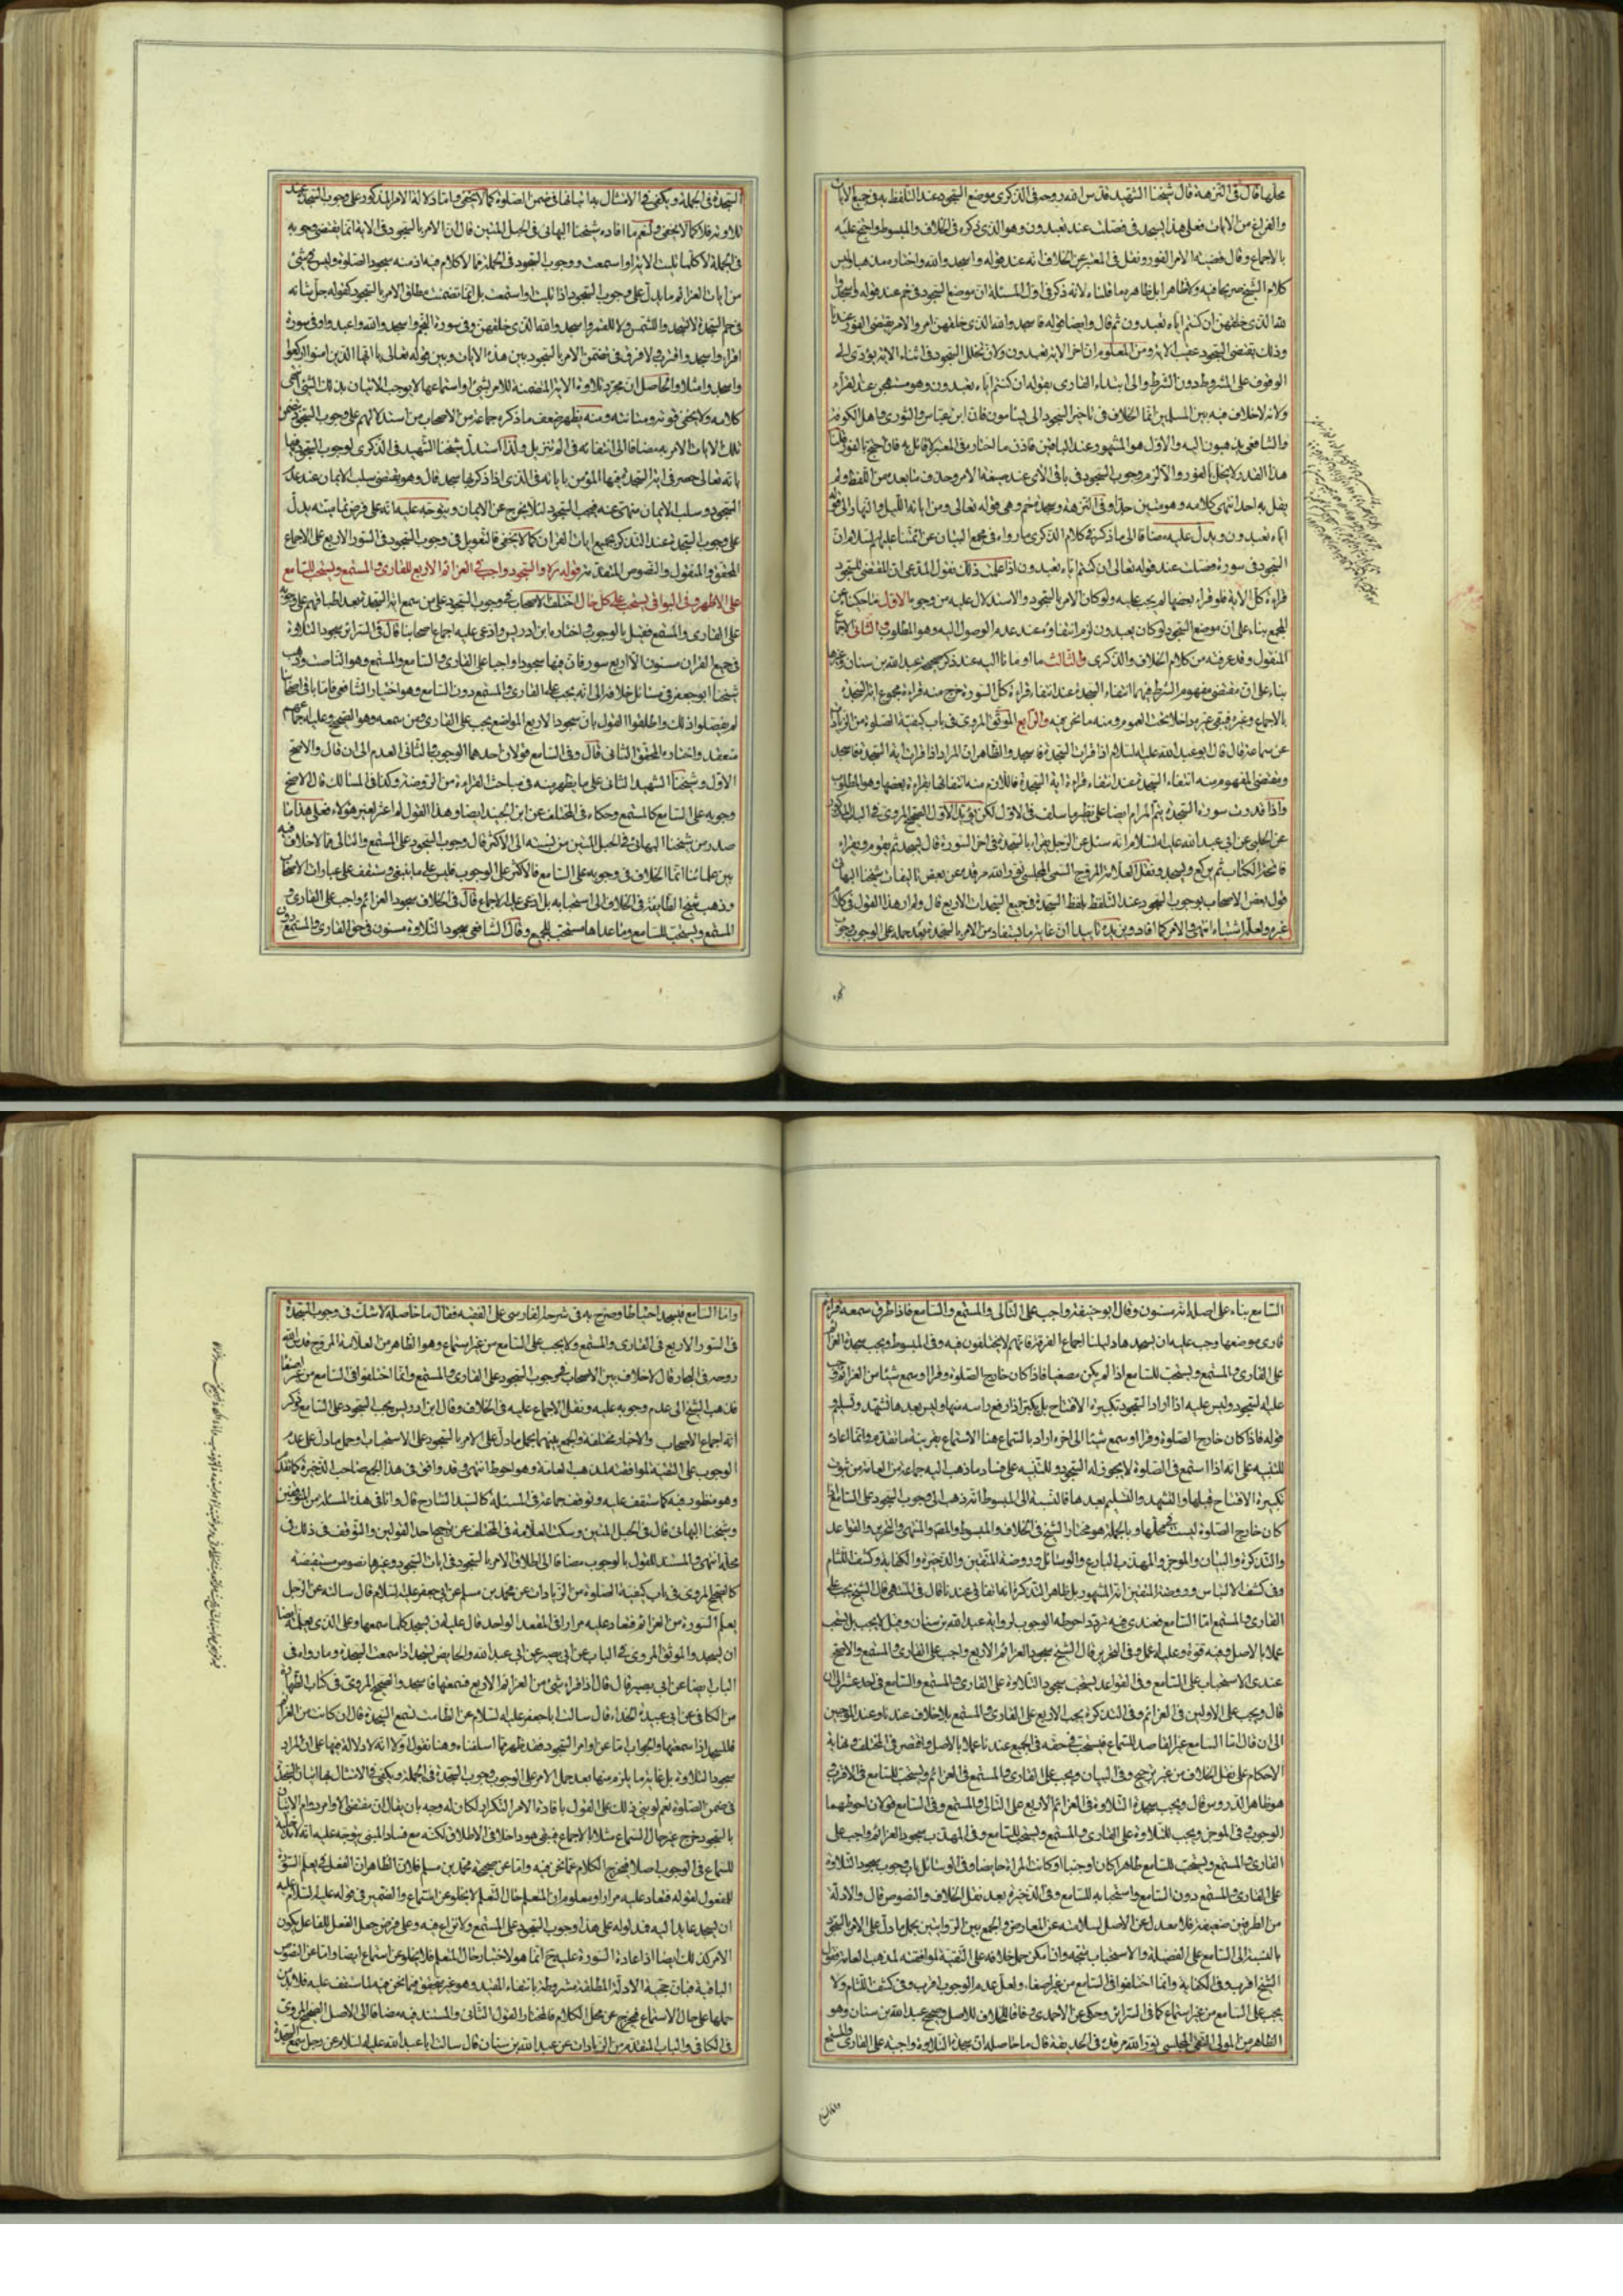 محلها قال في التنزهة قال شيخنا الشهيد قدس الله روحه في الذكرى موضع السجود عند التلفظ به في جميع الآيات
والفراغ من الآيات فعلى هذا يسجد في فصلت عند تعبدون وهو الذي ذكره في الخلاف والمبسوط واحتج عليه
بالاجماع وقال قضية الامر الفور ونقل في المعتبر عن الخلاف انه عند قوله واسجدوا لله واختاره مذهبا وليس
كلام الشيخ صريحا فيه ولا ظاهرا بل ظاهره ما قلناه لانه ذكر في اول المسئلة ان موضع السجود في حم عند قوله واسجدوا
لله الذي خلقهن ان كنتم اياه تعبدون ثم قال وايضا قوله فاسجدوا لله الذي خلقهن امر والامر يقتضي الفور عندنا
وذلك يقتضي السجود عقيب الآية ومن المعلوم ان اخر الآية تعبدون ولان تخلل السجود في اثناء الآية يؤدي الى
الوقوف على المشروط دون الشرط والى ابتداء القاري بقوله ان كنتم اياه تعبدون وهو مستهجن عند القراء
ولانه لا خلاف فيه بين المسلمين انما الخلاف في تاخير السجود الى يسأمون فان ابن عباس والثوري واهل الكوفة
والشافعي يذهبون اليه والاول هو المشهور عند الباقين فاذن ما اختاره في المعتبر لا قائل به فان احتج بالفور قلنا
هذا القدر لا يخل بالفور والا لزم وجوب السجود في باقي الآي عند صيغة الامر وحذف ما بعده من اللفظ ولم
يقل به احد انتهى كلامه وهو متين جدا وفي التنزهة وسجدة حم وهي قوله تعالى ومن اياته الليل والنهار الى قوله
اياه تعبدون ويدل عليه مضافا الى ما ذكر في كلام الذكرى ما رواه في مجمع البيان عن ائمتنا عليهم السلام ان
السجود في سورة فصلت عند قوله تعالى ان كنتم اياه تعبدون اذا علمت ذلك نقول المدعى ان المقتضي للسجود
قراءة كل الآية فلو قراء بعضها لم يجب عليه ولو كان الامر بالسجود والاستدلال عليه من وجوه الاول ما حكيناه عن
المجمع بناء على ان موضع السجود لو كان تعبدون لزم انتفاؤه عند عدم الوصول اليه وهو المطلوب الثاني الاجماع
المنقول وقد عرفته من كلام الخلاف والذكرى والثالث ما اومأنا اليه عند ذكر صحيحة عبدالله بن سنان وغيرها
بناء على ان مقتضى مفهوم الشرط فيهما انتفاء السجدة عند انتفاء قراءة كل السورة خرج منه قراءة مجموع اية السجدة
بالاجماع وغيره فبقي غيره داخلا تحت العموم ومنه ما نحن فيه والرابع الموثق المروي في باب كيفية الصلوة من الزيادات
عن سماعة قال قال ابوعبد الله عليه السلام اذا قرات السجدة فاسجد والظاهر ان المراد اذا قرات اية السجدة فاسجد
ومقتضى المفهوم منه انتفاء السجدة عند انتفاء قراءة اية السجدة فاللازم منه انتفائها بقراءة بعضها وهو المطلوب
عن الحلبي عن ابي عبد الله عليه السلام انه سئل عن الرجل يقراء بالسجدة في اخر السورة قال يسجد ثم يقوم ويقراء
فاتحة الكتاب ثم يركع ويسجد ونقل العلامة المروج التقي المجلسي نور الله مرقده عن بعض تاليفات شيخنا البهائي
قول بعض الاصحاب بوجوب السجود عند التلفظ بلفظ السجدة في جميع السجدات الاربع قال ولم ار هذا القول في كلام
غيره ولعله اشتباه انتهى والامر كما افاد ويزيده تاييدا ان غاية ما يستفاد من الامر بالسجدة بعد حمله على الوجوب وجوب
السجدة في الجملة ويكفي في الامتثال به اتيانها في ضمن الصلوة كما لا يخفى واما دلالة الامر المذكور على وجوب السجدة عند
تلاوته فلا كما لا يخفى ولنعم ما افاده شيخنا البهائي في الحبل المتين قال ان الامر بالسجود في الآية انما يقتضي وجوبه
في الجملة لا كلما تليت الآية او استمعت ووجوب السجود في الجملة مما لا كلام فيه اذ منه سجود الصلوة وليس في شئ
من ايات العزائم ما يدل على وجوب السجود اذا تليت او استمعت بل انما تضمنت مطلق الامر بالسجود كقوله جل شانه
في حم السجدة لا تسجدوا للشمس ولا للقمر واسجدوا لله الذي خلقهن وفي سورة النجم واسجدوا لله واعبدوا وفي سورة
اقراء واسجد واقترب ولا فرق في تضمن الامر بالسجود بين هذه الآيات وبين قوله تعالى يا ايها الذين امنوا اركعوا
واسجدوا مثلا والحاصل ان مجرد تلاوة الآية المتضمنة للامر بشئ او استماعها لا يوجب الاتيان بذلك الشئ انتهى
كلامه ولا يخفى قوته ومتانته ومنه يظهر ضعف ما ذكره جماعة من الاصحاب من استدلالهم على وجوب السجود بتضمن
تلك الآيات الامر به مضافا الى انتفائه في الم تنزيل ولذا استدل شيخنا الشهيد في الذكرى لوجوب السجود فيها
بانه تعالى حصر في اية السجدة فيها المؤمن باياته في الذي اذا ذكر بها سجد قال وهو يقتضي سلب الايمان عند عدم
السجود وسلب الايمان منهي عنه فيجب السجود لئلا يخرج عن الايمان ويتوجه عليه انه على فرض تماميته يدل
على وجوب السجدة عند التذكر بجميع ايات القران كما لا يخفى فالتعويل في وجوب السجود في السور الاربع على الاجماع
المحقق والمنقول والنصوص المتقدمة قوله ره والسجود واجب في العزائم الاربع للقاري والمستمع ويستحب للسامع
على الاظهر وفي البواقي يستحب على كل حال اختلف الاصحاب في وجوب السجود على من سمع اية السجدة بعد اطباقهم على وجوبه
على القاري والمستمع فقيل بالوجوب اختاره ابن ادريس وادعى عليه اجماع اصحابنا قال في السرائر سجود التلاوة
في جميع القران مسنون الا اربع سور فان فيها سجودا واجبا على القاري والسامع والمستمع وهو الناصت وذهب
شيخنا ابو جعفر في مسائل خلافه الى انه يجب على القاري والمستمع دون السامع وهو اختيار الشافعي فاما باقي اصحابنا
لم يفصلوا ذلك واطلقوا القول بان سجود الاربع المواضع يجب على القاري ومن سمعه وهو الصحيح وعليه اجماعهم
منعقد واختاره المحقق الثاني قال وفي السامع قولان احدهما الوجوب الثاني العدم الى ان قال والاصح
الاول وشيخنا الشهيد الثاني على ما يظهر منه في مباحث القراءة من الروضة وكذا في المسالك قال الاصح
وجوبه على السامع كالمستمع وحكاه في المختلف عن ابن الجنيد ايضا وهذا القول لم اعثر لغير هؤلاء فعلى هذا ما
صدر من شيخنا البهائي في الحبل المتين من نسبته الى الاكثر قال وجوب السجود على المستمع والتالي مما لا خلاف فيه
بين علمائنا انما الخلاف في وجوبه على السامع فالاكثر على الوجوب فليس على ما ينبغي وستقف على عبارات الاصحاب
وذهب شيخ الطائفة في الخلاف الى استحبابه بل ادعى عليه الاجماع قال في الخلاف سجود العزائم واجب على القاري و
المستمع ويستحب للسامع وما عداها مستحب للجميع وقال الشافعي سجود التلاوة مسنون في حق القاري والمستمع دون
السامع بناء على اصله انه مسنون وقال ابو حنيفة واجب على التالي والمستمع والسامع فاذا طرق سمعه قراءة
قاري موضعها وجب عليه ان يسجدها دليلنا اجماع الفرقة فانهم لا يختلفون فيه وفي المبسوط ويجب سجدة العزائم
على القاري والمستمع ويستحب للسامع اذا لم يكن مصغيا فاذا كان خارج الصلوة وقرا او سمع شيئا من العزائم وجب
عليه السجود وليس عليه اذا اراد السجود تكبيرة الافتتاح بل يكبر اذا رفع راسه منها وليس بعدها تشهد وتسليم و
قوله فاذا كان خارج الصلوة وقرا او سمع شيئا الى اخره اراد بالسماع هنا الاستماع بقرينة ما تقدم وانما اعاده
للتنبيه على انه اذا استمع في الصلوة لا يجوز له السجود وللتنبيه على فساد ما ذهب اليه جماعة من العامة من ثبوت
تكبيرة الافتتاح قبلها والتشهد والتسليم بعدها فالنسبة الى المبسوط انه ذهب الى وجوب السجود على السامع اذا
كان خارج الصلوة ليست في محلها وبالجملة هو مختار الشيخ في الخلاف والمبسوط والمعتبر والمنتهى والتحرير والقواعد
والتذكرة والبيان والموجز والمهذب البارع والوسائل وروضة المتقين والذخيرة والكفاية وكشف اللثام
وفي كشف الالتباس وروضة المتقين انه المشهور بل ظاهر التذكرة انه اتفاقي عندنا قال في المنتهى قال الشيخ يجب على
القاري والمستمع اما السامع فعندي فيه تردد احوطه الوجوب لرواية عبد الله بن سنان وقيل لا يجب بل يستحب
عملا بالاصل وفيه قوة وعليه اعمل وفي التحرير قال الشيخ سجود العزائم الاربع واجب على القاري والمستمع والاصح
عندي الاستحباب على السامع وفي القواعد يستحب سجود التلاوة على القاري والمستمع والسامع في احد عشر الى ان
قال ويجب على الاولين في العزائم وفي التذكرة يجب الاربع على القاري والمستمع بلا خلاف عندنا وعند الموجبين
الى ان قال اما السامع غير القاصد للسماع فيستحب في حقه في الجميع عندنا عملا بالاصل واقتصر في المختلف ونهاية
الاحكام على نقل الخلاف من غير ترجيح وفي البيان ويجب على القاري والمستمع في العزائم ويستحب للسامع في الاقرب
هو ظاهر الدروس قال ويجب سجدة التلاوة في العزائم الاربع على التالي والمستمع وفي السامع قولان احوطهما
الوجوب وفي الموجز ويجب للتلاوة على القاري والمستمع ويستحب للسامع وفي المهذب سجود العزائم واجب على
القاري والمستمع ويستحب للسامع طاهرا كان او جنبا او كانت المراة حايضا وفي الوسائل باب وجوب سجود التلاوة
على القاري والمستمع دون السامع واستحبابه للسامع وفي الذخيرة بعد نقل الخلاف والنصوص قال والادلة
من الطرفين ضعيفة فلا معدل عن الاصل لسلامته عن المعارض والجمع بين الروايتين بحمل ما دل على الامر بالسجود
بالنسبة الى السامع على الفضيلة والاستحباب متجه وان امكن حمل خلافه على التقية لموافقته لمذهب العامة فقول
الشيخ اقرب وفي الكفاية وانما اختلفوا في السامع من غير اصغاء ولعل عدم الوجوب اقرب وفي كشف اللثام ولا
يجب على السامع من غير استماع كما في السرائر وحكي عن الاحمدي وفاقا للخلاف للاصل وصحيح عبد الله بن سنان وهو
الظاهر من المولى التقي المجلسي نور الله مرقده في الحديقة قال ما حاصله ان سجدة التلاوة واجبة على القاري والمستمع
واما السامع
واما السامع فيسجد احتياطا وصرح به في شرحه الفارسي على الفقيه فقال ما حاصله لا شك في وجوب السجدة
في السور الاربع في القاري والمستمع ولا يجب على السامع من غير استماع وهو الظاهر من العلامة المروج قدس الله
روحه في البحار قال لا خلاف بين الاصحاب في وجوب السجود على القاري والمستمع وانما اختلفوا في السامع من غير اصغاء
فذهب الشيخ الى عدم وجوبه عليه ونقل الاجماع عليه في الخلاف وقال ابن ادريس يجب السجود على السامع وذكر
انه اجماع الاصحاب والاخبار مختلفة والجمع بينهما بحمل ما دل على الامر بالسجود على الاستحباب وحمل ما دل على عدم
الوجوب على التقية لموافقته لمذهب العامة وهو احوط انتهى وقد وافق في هذا الجمع صاحب الذخيرة كما تقدم
وهو منظور فيه كما ستقف عليه وتوقف جماعة في المسئلة كالسيد الشارح قال وانا في هذه المسئلة من المتوقفين
وشيخنا البهائي قال في الحبل المتين وسكت العلامة في المختلف عن ترجيح احد القولين والتوقف في ذلك في
محله انتهى والمستند للقول بالوجوب مضافا الى اطلاق الامر بالسجود في ايات السجود وغيرها نصوص مستفيضة
كالصحيح المروي في باب كيفية الصلوة من الزيادات عن محمد بن مسلم عن ابي جعفر عليه السلام قال سالته عن الرجل
يعلم السورة من العزائم فتعاد عليه مرارا في المقعد الواحد قال عليه ان يسجد كلما سمعها وعلى الذي يعلمه ايضا
ان يسجد والموثق المروي في الباب عن ابي بصير عن ابي عبد الله والحايض تسجد اذا سمعت السجدة وما رواه في
الباب ايضا عن ابي بصير قال قال اذا قراء شئ من العزائم الاربع فسمعتها فاسجد والصحيح المروي في كتاب الطهارة
من الكافي عن ابي عبيدة الحذاء قال سالت ابا جعفر عليه السلام عن الطامث تسمع السجدة قال ان كانت من العزائم
فلتسجد اذا سمعتها والجواب اما عن اوامر السجود فقد ظهر مما اسلفناه وهنا نقول اولا انه لا دلالة فيها على ان المراد
سجود التلاوة بل غاية ما يلزم منها بعد حمل الامر على الوجوب وجوب السجدة في الجملة ويكفي في الامتثال بها اتيان السجدة
في ضمن الصلوة نعم لو بني ذلك على القول بافادة الامر التكرار لكان له وجه بان يقال ان مقتضى الاوامر دوام الاتيان
بالسجود خرج غير حال السماع مثلا بالاجماع فبقي هو داخلا في الاطلاق لكنه مع فساد المبنى يتوجه عليه انه لا مدخلية
للسماع في الوجوب اصلا فيخرج الكلام عما نحن فيه واما عن صحيحة محمد بن مسلم فلان الظاهر ان الفعل في يعلم السورة
للمفعول لقوله فتعاد عليه مرارا ومعلوم ان المتعلم حال التعلم لا يخلو عن استماع والضمير في قوله عليه السلام عليه
ان يسجد عايد اليه فمدلوله على هذا وجوب السجود على المستمع ولا نزاع فيه وعلى فرض جعل الفعل للفاعل يكون
الامر كذلك ايضا اذ اعادة السورة عليه ح انما هو لاختبار حال المتعلم فلا يخلو عن استماع ايضا واما عن النصوص
الباقية فبان حجية الادلة المطلقة مشروطة بانتفاء المقيد وهو غير متحقق فيما نحن فيه لما ستقف عليه فلابد من
حملها على حال الاستماع فيخرج عن محل الكلام فالمختار القول الثاني والمستند فيه مضافا الى الاصل الصحيح المروي
في الكافي والباب المتقدم من الزيادات عن عبد الله بن سنان قال سالت ابا عبد الله عليه السلام عن رجل سمع السجدة